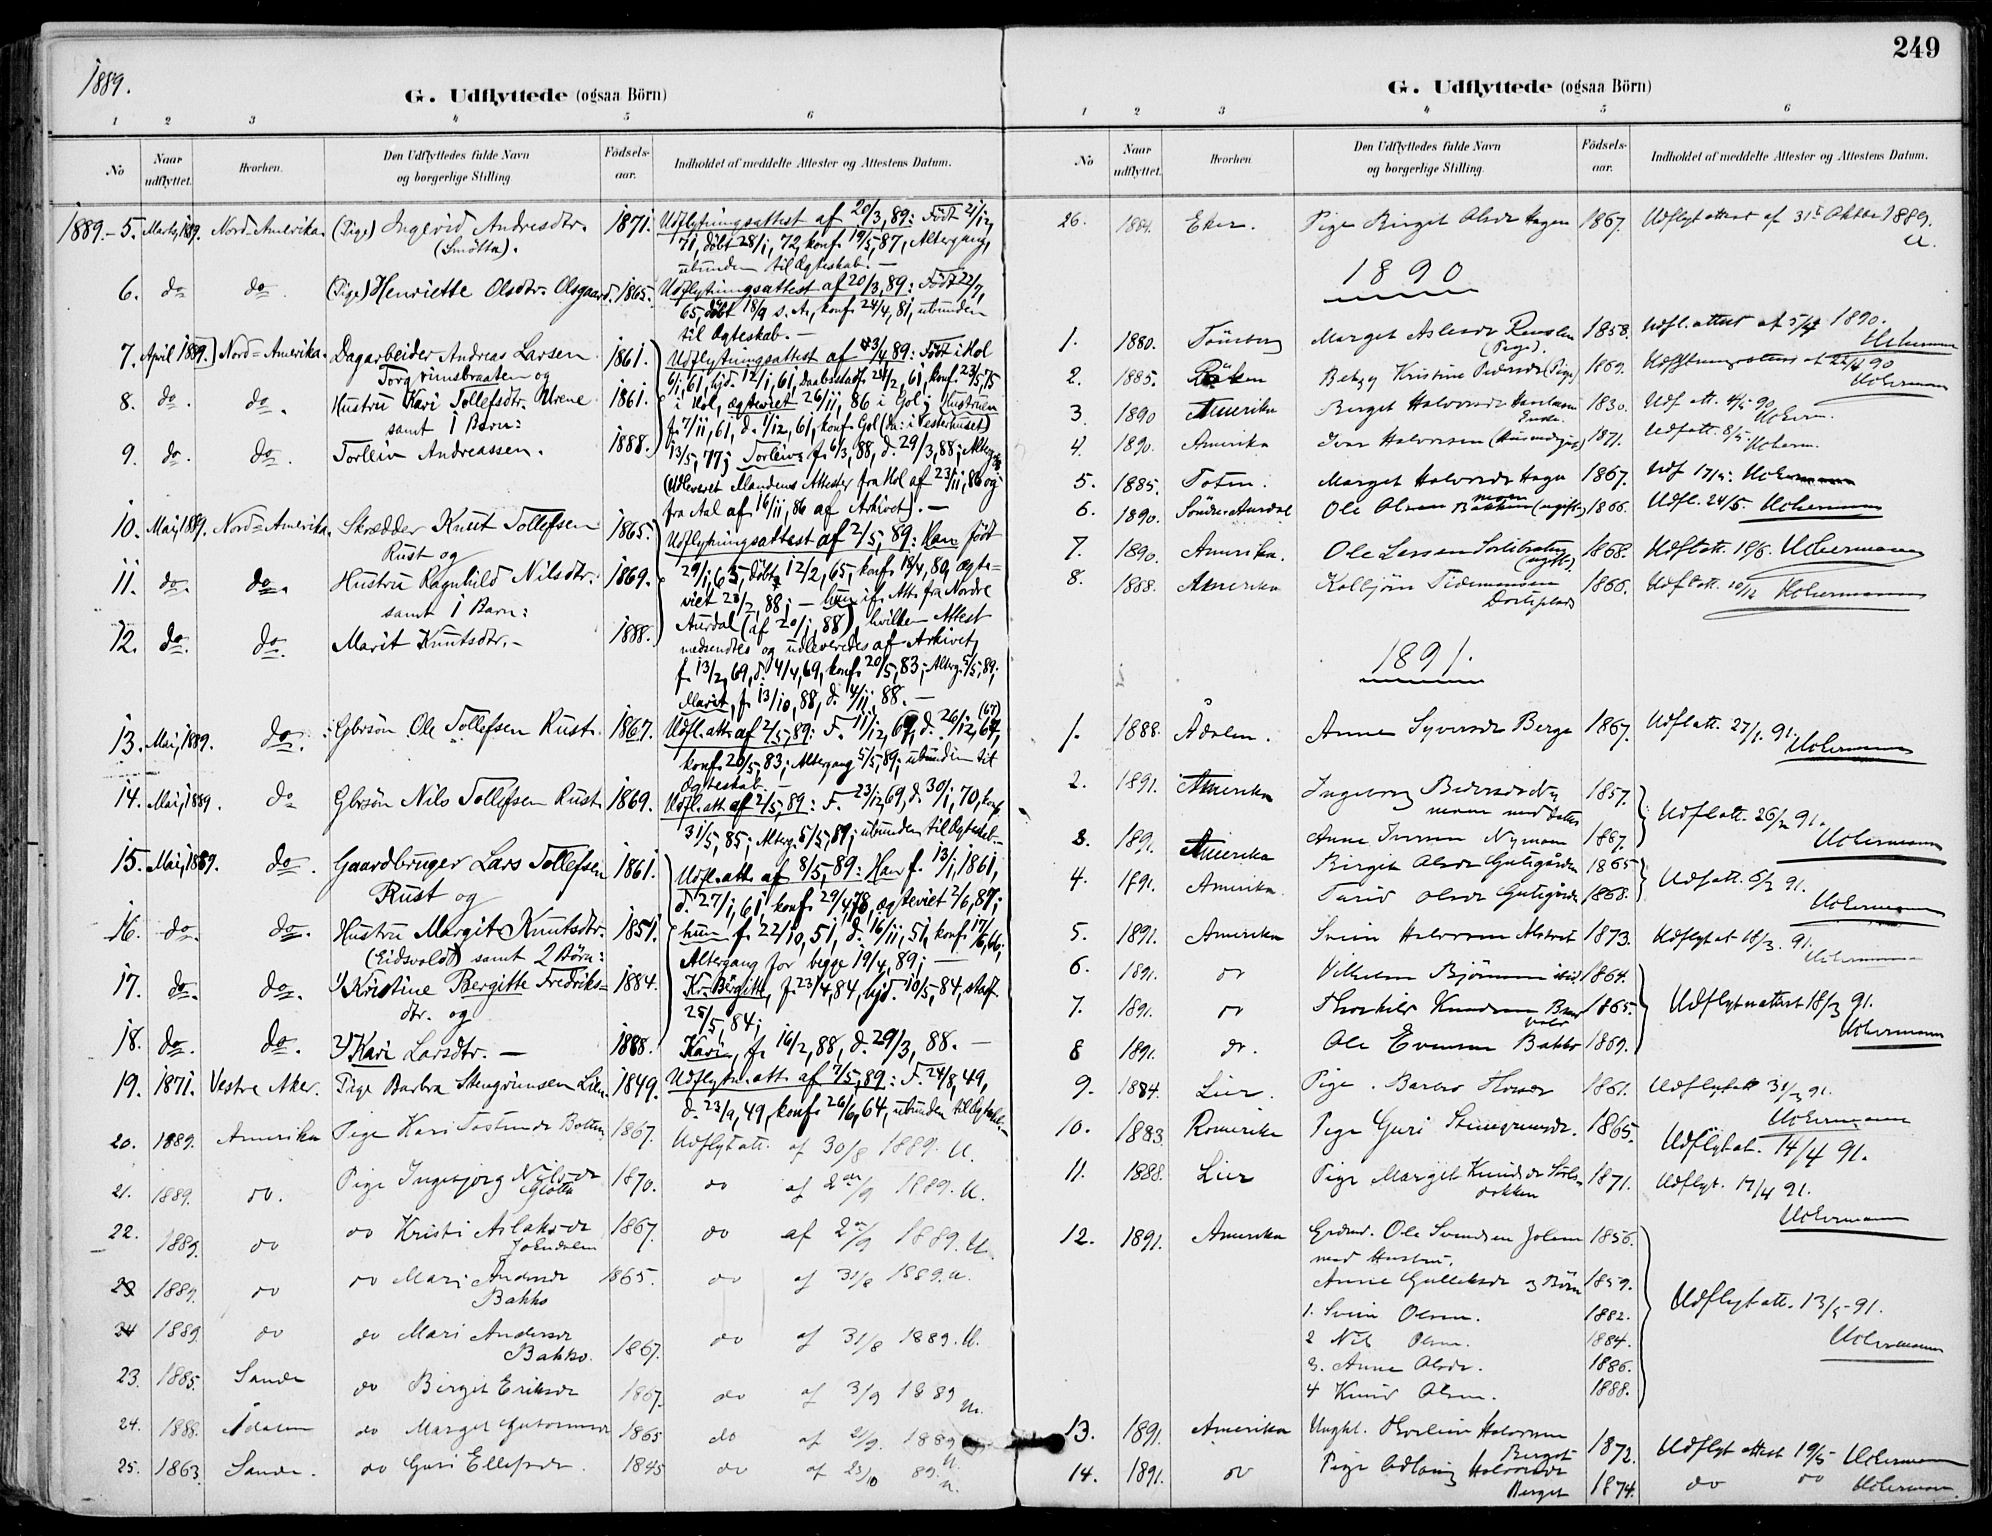 1889.
G. Udflyttede (ogsaa Börn)
1 2 3 4 5 6
No Naar udflyttet. Hvorhen. Den Udflyttedes fulde Navn og borgerlige Stilling. Födsels-aar. Indholdet af meddelte Attester og Attestens Datum.
1889.- 5. Marts, 1889. Nord-Amerika. (Pige) Ingerid Andresdtr. 1871. Udflytningsattest af 20/3, 89: Født 21/12,
(Smøtta). 71, döbt 28/1, 72, konf. 19/5, 87, Altergang,
ubunden til Ægteskab. —
6. do do. (Pige) Henriette Olsdtr. Olsgaard. 1865. Udflytningsattest af 20/3, 89: Født 22/7,
65, döbt 18/9 s. A., konf. 24/4, 81, ubunden
til Ægteskab. —
7. April 1889. Nord-Amerika. Dagarbeider Andreas Larsen 1861. Udflytningsattest af 3/4 89: Født i Hol
Torgrimsbraaten og 6/1, 61, hjd. 12/1, 61, Daabsstadf. 24/2, 61, konf. 23/5, 75
8. do. do. Hustru Kari Tollefsdtr. Ulrene 1861. i Hol, ægteviet 26/11, 86 i Gol; Hustruen
samt 1 Barn: f. 7/11, 61, d. 1/12, 61, konf. Gol
9. do. do. Torleiv Andreassen. 1888. 13/5, 77; Torleiv f. 6/3, 88, d. 29/3, 88;
(Udleveret Mandens Attester fra Hol af 23/11, 86 og
fra Aal af 16/11, 86 af Arkivet). —
10. Mai, 1889. Nord-Amerika. Skrædder Knut Tollefsen 1865. Udflytningsattest af 2/5, 89: Han født
Rust og 29/1, 65, döbt 12/2, 65, konf. 18/4, 80, ægte-
11. do. do. Hustru Ragnhild Nilsdtr. 1869. viet 23/2, 88; — hun if. Att. fra Nordre
samt 1 Barn: Aurdal (af 20/1, 88), hvilken Attest
12. do. do. Marit Knutsdtr. - 1888. medsendtes og udleveredes af Arkivet,
f. 13/2, 69, d. 4/4, 69, konf. 20/5, 83; Alterg. 5/5, 89;
Marit, f. 13/10, 88, d. 4/11, 88. —
13. Mai, 1889. do. Gbrsön Ole Tollefsen Rust. 1867. Udfl. att. af 2/5, 89: F. 11/12, 67, d. 26/12, 67, (67)
konf. 20/5, 83; Altergang 5/5, 89; ubunden til
Ægteskab. —
14. Mai, 1889. do Gbrsön Nils Tollefsen Rust. 1869. Udfl. att. af 2/5, 89: F. 23/12 69, d. 30/1, 70, konf.
31/5, 85; Alterg. 5/5, 89; ubunden til Ægtesk. —
15. Mai, 1889. do. Gaardbruger Lars Tollefsen 1861. Udfl. att. af 8/5, 89: Han f. 13/1, 1861,
Rust og d. 27/1, 61, konf. 29/4 78, ægteviet 2/6, 87;
16. do. do. Hustru Margit Knutsdtr. 1851. hun f. 22/10, 51, d. 16/11, 51, konf. 17/6, 66;
(Eidsvoldt) samt 2 Börn: Altergang for begge 19/4, 89; —
17. do. do. 1) Kristine Bergitte Fredriks- 1884. Kr. Bergitte, f. 23/4, 84, hjd. 10/5, 84, stadf.
dtr. og 25/5, 84;
18. do. do. 2) Kari Larsdtr. — 1888. Kari, f. 16/2, 88, d. 29/3, 88. —
19. 1871. Vestre Aker. Pige Barbra Stengrimsen Lien. 1849. Udflytn. att. af 7/5, 89: F. 24/8, 49,
d. 23/9, 49, konf. 26/6, 64, ubunden til Ægtesk. —
20. 1889. Amerika Pige Kari Tostensdr Botten 1867. Udflyt att. af 30/8 1889. U.
21. 1889. do. Pige Ingebjorg Nilsdr 1870. do af 2/9 1889. U.
Glötta
22. 1889. do do Kristi Aslaksdr 1867. do af 2/9 1889. U.
23 1889. do do Mari Andersdr 1865. do af 31/8 1889. U.
Bakko
24 1889 do do Mari Andersdr 1867. do af 31/8 1889. U.
Bakko.
23. 1885. Sande do Birgit Eriksdr 1867. do af 3/9 1889 U.
24. 1888. Ådalen do Marget Guttormsdr 1865 do af 21/9. 1889 U.
25. 1863. Sande. do Guri Ellefsdr 1845 do af 23/10 89. U.
249
G. Udflyttede (ogsaa Börn)
1 2 3 4 5 6
No Naar udflyttet. Hvorhen Den Udflyttedes fulde Navn og borgerlige Stilling. Födsels-aar. Indholdet af meddelte Attester og Attestens Datum.
26. 1889. Eker. Pige Birget Olsdr Hagen 1867. Udflyt attest af 31te Oktbr 1889.
U.
1890
1. 1880. Tönsberg Marget Aslesdr 1858. Udfl. attest af 5/4 1890.
(Pige). Uchermann
2. 1885. Röken Betzy Kristine Pedersdr (Pige) 1869. 22/4 90
Uchermann
3. 1890 Amerika Birget Halvorsdr 1830. Udf. att. 4/5 90
Enke. Ucherm.
4. 1890. Amerika Ivar Halvorsen 1871. Udf att. 8/5.
Ucherm.
5. 1885. Toten. Marget Halvorsdr Hagen 1867. Udf 17/5. Uchermann
6. 1890. Söndre Aurdal Ole Olsen Bakkemoen (ugift) 1866. Udfl. 24/5. Uchermann
7. 1890. Amerika. Ole Larsen 1868. Udfl att. 18/6. Uchermann
(ugift)
8. 1888. Amerika Kolbjörn Tidemannsen 1866. Udfl att. 10/12 Uchermann
1891.
1. 1888. Ådalen. Anne Syversdr Berge 1867. Udfl att. 27/1. 91.
Uchermann
2. 1891. Amerika Ingeborg Ny- 1857.
moen med datter Udfl att. 26/2 91.
3. 1891. Amerika Anne Iversen Nymoen 1887. Uchermann
4. 1891. Amerika. Birgit Olsdr Gutugården 1865 Udf att. 6/3 91.
Turid Olsdr Gutugården 1868. Uchermann
5. 1891. Amerika Svein Halvorsen 1873. Udflyt at 18/3. 91.
Uchermann
6. 1891. do Vilhelm Björnsen 1864.
7. 1891. do Thorkild Knudsen 1865. Udflytn attest 18/3 91.
8 1891. do. Ole Evensen Bakko 1869. Uchermann
9. 1884. Lier. Pige. Barbro 1861. Udflyt att 31/3 91.
Uchermann
10. 1883 Romerike Pige Guri Steingrimsdr. 1865. Udflyt at. 14/4 91.
11. 1888. Lier Pige Marget Knudsdr Störs- 1871. Udflyt. 17/4 91.
dokken Uchermann
12. 1891. Amerika Grdmd. Ole Svendsen Jolem 1856.
med Hustru.
Anne Gulleksdr og Börn 1859. Udflyt att. 13/5 - 91.
1. Svein Olsen. 1882. Uchermann
2 Nils Olsen. 1884.
3. Anne Olsdr. 1886.
4 Knud Olsen. 1888.
13. 1891. Amerika Ungkl. Thorlein Halvorsen 1872. Udflyt attest 19/5 Uchermann
Berget
14. 1891. do Pige Halvorsdr 1874. do do Uchermann.
Berget